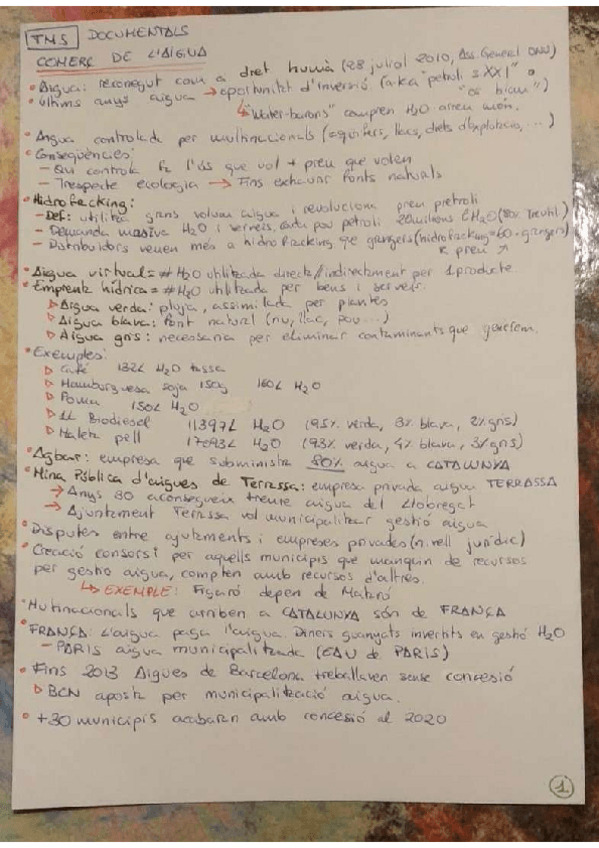 TMS DOCUMENTALS
COMERÇ DE L'AIGUA
• Aigua: reconegut com a dret humà (28 juliol 2010, Ass. General ONU)
• Últims anys aigua → oportunitat d'inversió (a.k.a "petroli s.XXI" o
"or blau")
↳ "Water-barons" compren H2O arreu món.
• Aigua controlada per multinacionals (aqüífers, llacs, drets d'explotació, ...)
• Conseqüències:
- Qui controla fa l'ús que vol + preu que volen
- Trespecte ecologia → Fins exhaurir fonts naturals
• Hidrofracking:
- Def: utilitza grans volum aigua i revoluciona preu petroli
- Demanda massiva H2O i serveis, cada pou petroli 20milions L H2O (80%)
- Distribuidors venen més a hidrofracking que grangers (hidrofracking=60·grangers)
& preu ↗
• Aigua virtual = # H2O utilitzada direct/indirectment per 1 producte.
• Emprenta hídrica = # H2O utilitzada per bens i serveis.
▷ Aigua verda: pluja, assimilada per plantes
▷ Aigua blava: font natural (riu, llac, pou...)
▷ Aigua gris: necessaria per eliminar contaminants que generem.
• Exemples:
▷ Café 132L H2O tassa
▷ Hamburguesa soja 150g 160L H2O
▷ Poma 150L H2O
▷ 1L Biodiesel 11397L H2O (95% verda, 3% blava, 2% gris)
▷ Maleta pell 17093L H2O (93% verda, 4% blava, 3% gris)
• Agbar: empresa que subministra 80% aigua a CATALUNYA
• Mina Pública d'aigues de Terrassa: empresa privada aigua TERRASSA
→ Anys 30 aconsegueix treure aigua del Llobregat
→ Ajuntament Terrassa vol municipalitzar gestió aigua
• Disputes entre ajutments i empreses privades (nivell jurídic)
• Creació consorsi per aquells municipis que manquin de recursos
per gestió aigua, compten amb recursos d'altres.
↳ EXEMPLE: Figaró depen de Mataró
• Multinacionals que arriben a CATALUNYA són de FRANÇA
• FRANÇA: L'aigua paga l'aigua. Diners guanyats invertits en gestió H2O
- PARIS aigua municipalitzada (EAU de PARIS)
• Fins 2013 Aigues de Barcelona treballaven sense concessió
▷ BCN aposta per municipalització aigua.
• +30 municipis acabaran amb concesió al 2020
1